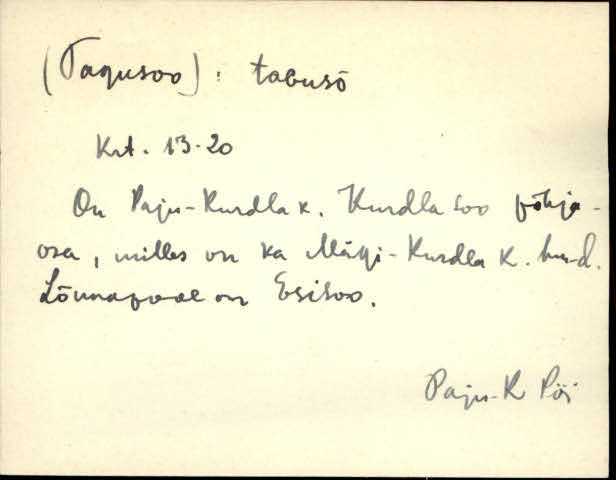 (Tagusoo) : tagusō
Krt. 13-20
On Paju-Kurdla k. Kurdla soo põhja-
osa, milles on ka Mäqi-Kurdla k.
Lõunapool on Esisoo.
Paju-K Pöi